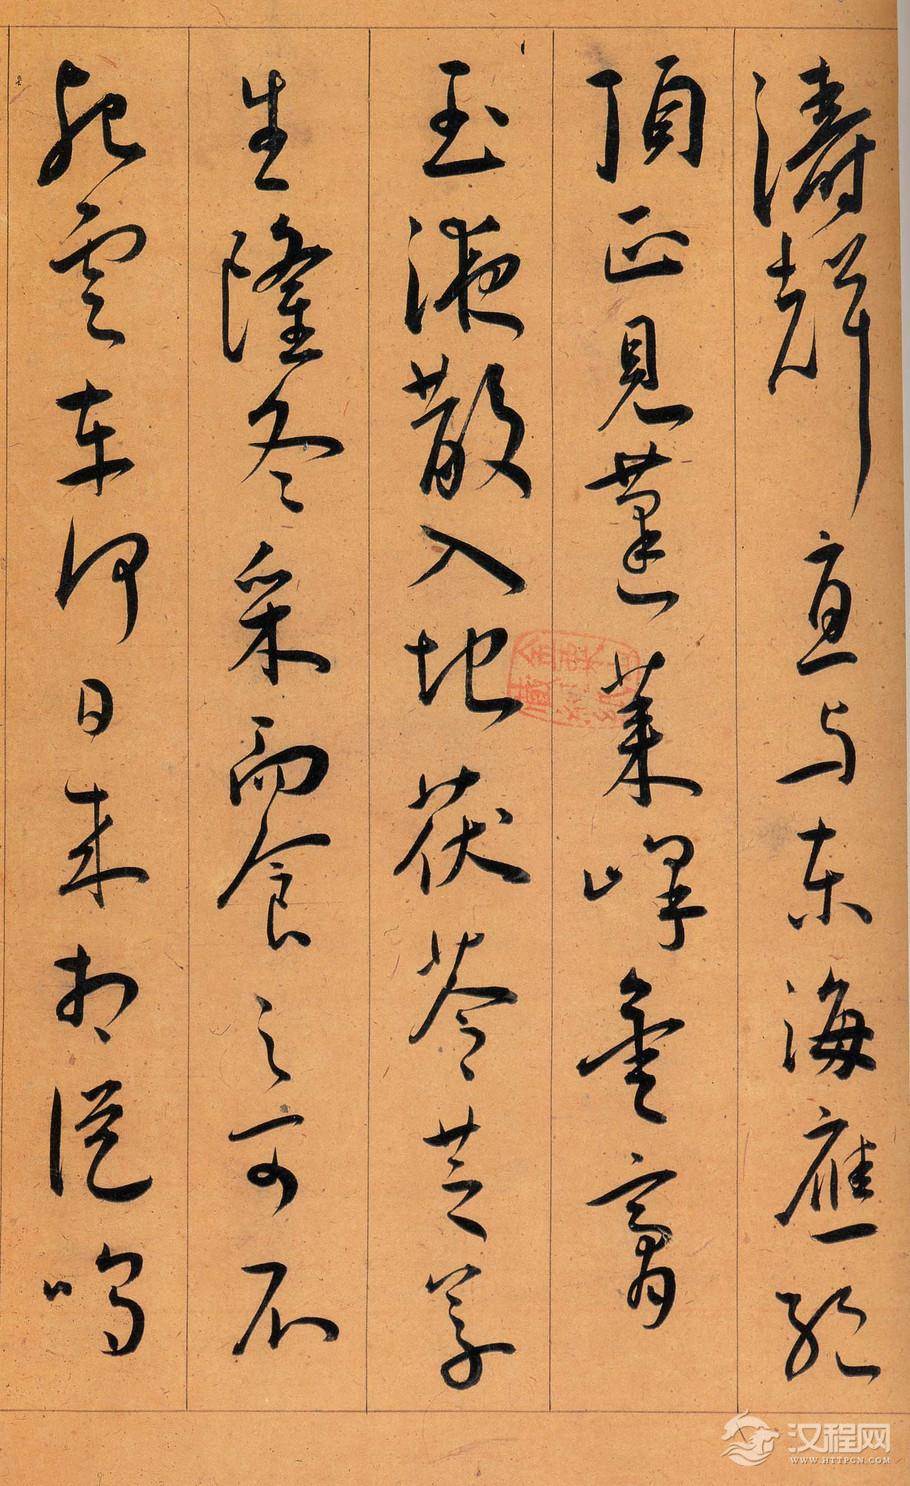 濤聲直与東海應絶
頂正見蓬萊峰金膏
玉液散入地茯苓芝草
生隆冬采而食之可不
死雲車何日來相從鳴
汉程网
WWW.HTTPCN.COM